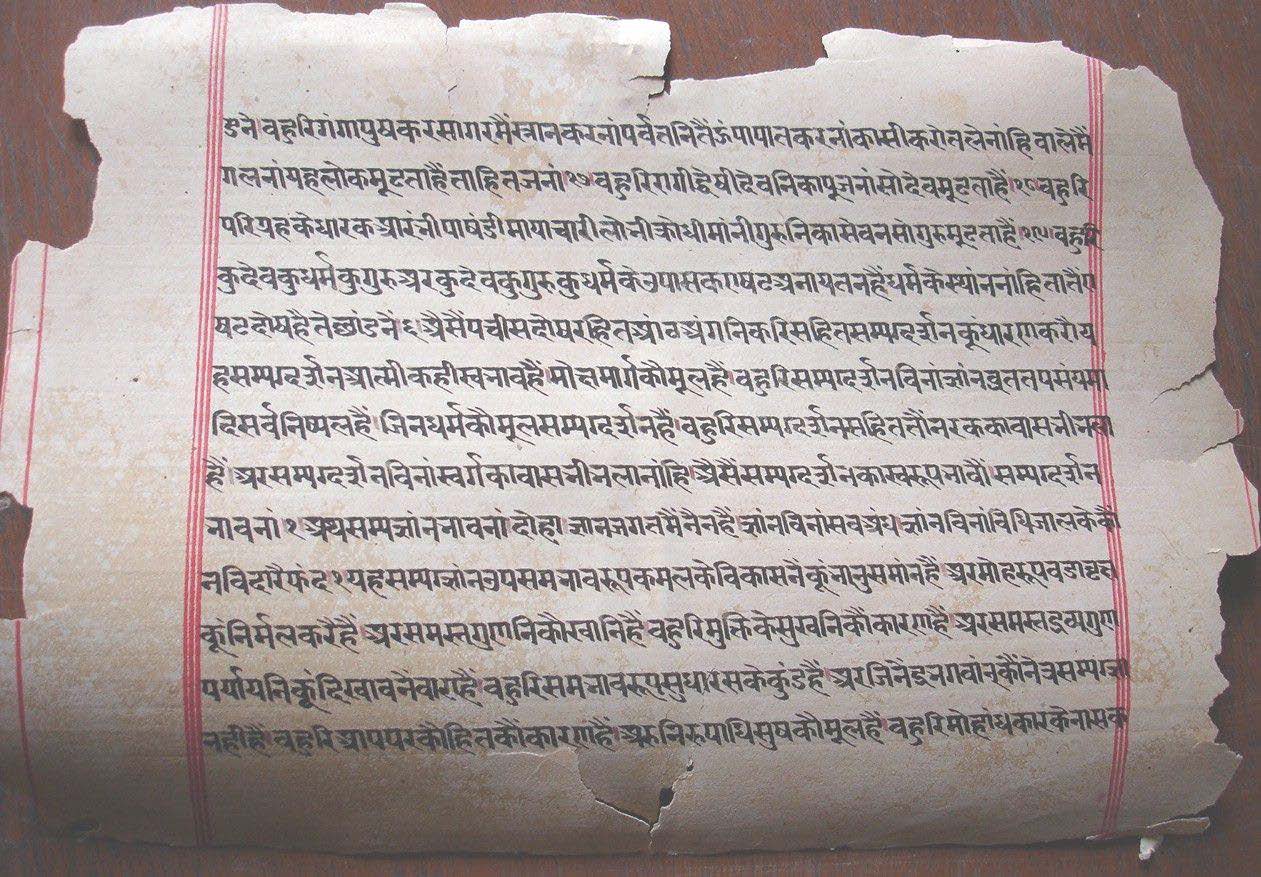 डने वहुरि गंगा पुषकर सागरमैं स्नान करनां पर्वतनितैं ऊंपापात करनां कासी करोत लेनां हिवालेमैं
गलनां यह लोकमूढताहैं ताहि तजनां १७ वहुरि रागी द्वेषी देवनिका पूजनां सो देवमूढताहैं १८ वहुरि
परिग्रहके धारक आरंभी पाषंडी मायाचारी लोभी क्रोधी मांनी गुरुनिका सेवन सो गुरुमूढताहैं १९ वहुरि
कुदेव कुधर्म कुगुरु अर कुदेव कुगुरु कुधर्मके उपासक ए षट अनायतनहैं धर्मके स्थांन नांहि तातैं ए
षट दोषहै ते छांडनें ६ अैसैं पचीस दोष रहित आठ अंगनिकरि सहित सम्यग्दर्शनकूं धारण करौ य
ह सम्यग्दर्शन आत्मीकही स्वभावहैं मोक्षमार्गकौ मूलहैं वहुरि सम्यग्दर्शनविनां ज्ञांन व्रत तप संयमा
दि सर्व निष्फलहैं जिनधर्मकौ मूल सम्यग्दर्शनहैं वहुरि सम्यग्दर्शनसहित तौ नरकका वास भी भला
हैं अर सम्यग्दर्शनविनां स्वर्गका वास भी भला नांहि अैसैं सम्यग्दर्शनका स्वरूप भावौं सम्यग्दर्शन
भावनां १ अथ सम्यज्ञांन भावनां दोहा ज्ञान जगतमैं नैनहैं ज्ञांनविनां सव अंध ज्ञांनविनां विधिजालके कौ
न विदारै फंद १ यह सम्यग्ज्ञांन उपसमभावरूप कमलके विकासनैकूं भानु समांनहैं अर मोहरूप
कूं निर्मल करैहैं अर समस्त गुणनिकौ खानिहैं वहुरि मुक्तिके सुखनिकौं कारणहैं अर समस्त द्रव्य गुण
पर्यायनिकूं दिखावनैंवारोहैं वहुरि समभावरूप सुधारसके कुंडहैं अर जिनेंद्र भगवांनकौं नेत्र सम्यग्ज्ञा
नहीहैं वहुरि आपपरकौ हितकौं कारणहैं अरु निरुपाधि सुषकौ मूलहैं वहुरि मोहांधकारके नासक